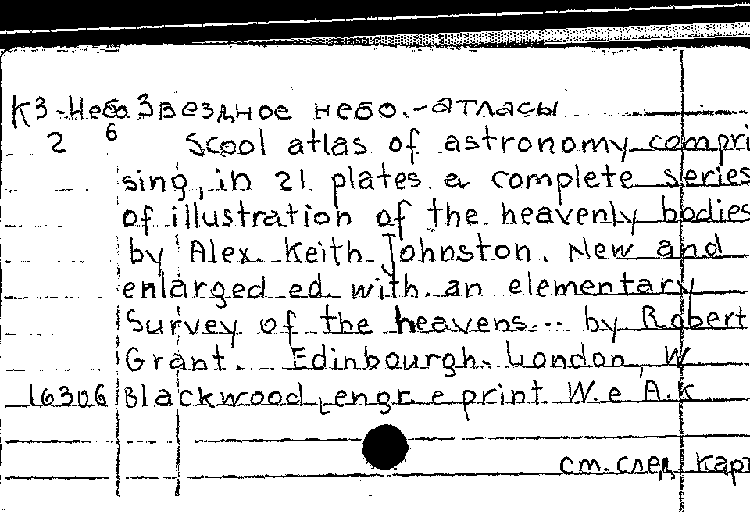 КЗ-Небо Звездное небо.-атласы
2 6 Scool atlas of astronomy compri
sing, in 21 plates a complete series
of illustration of the heavenly bodies
by Alex Keith Johnston. New and
enlarged ed. with. an elementary
Survey of the heavens... by Robert
Grant. Edinbourgh. London, W
16306 Blackwood, engr e print W. e A.K
см. след карт